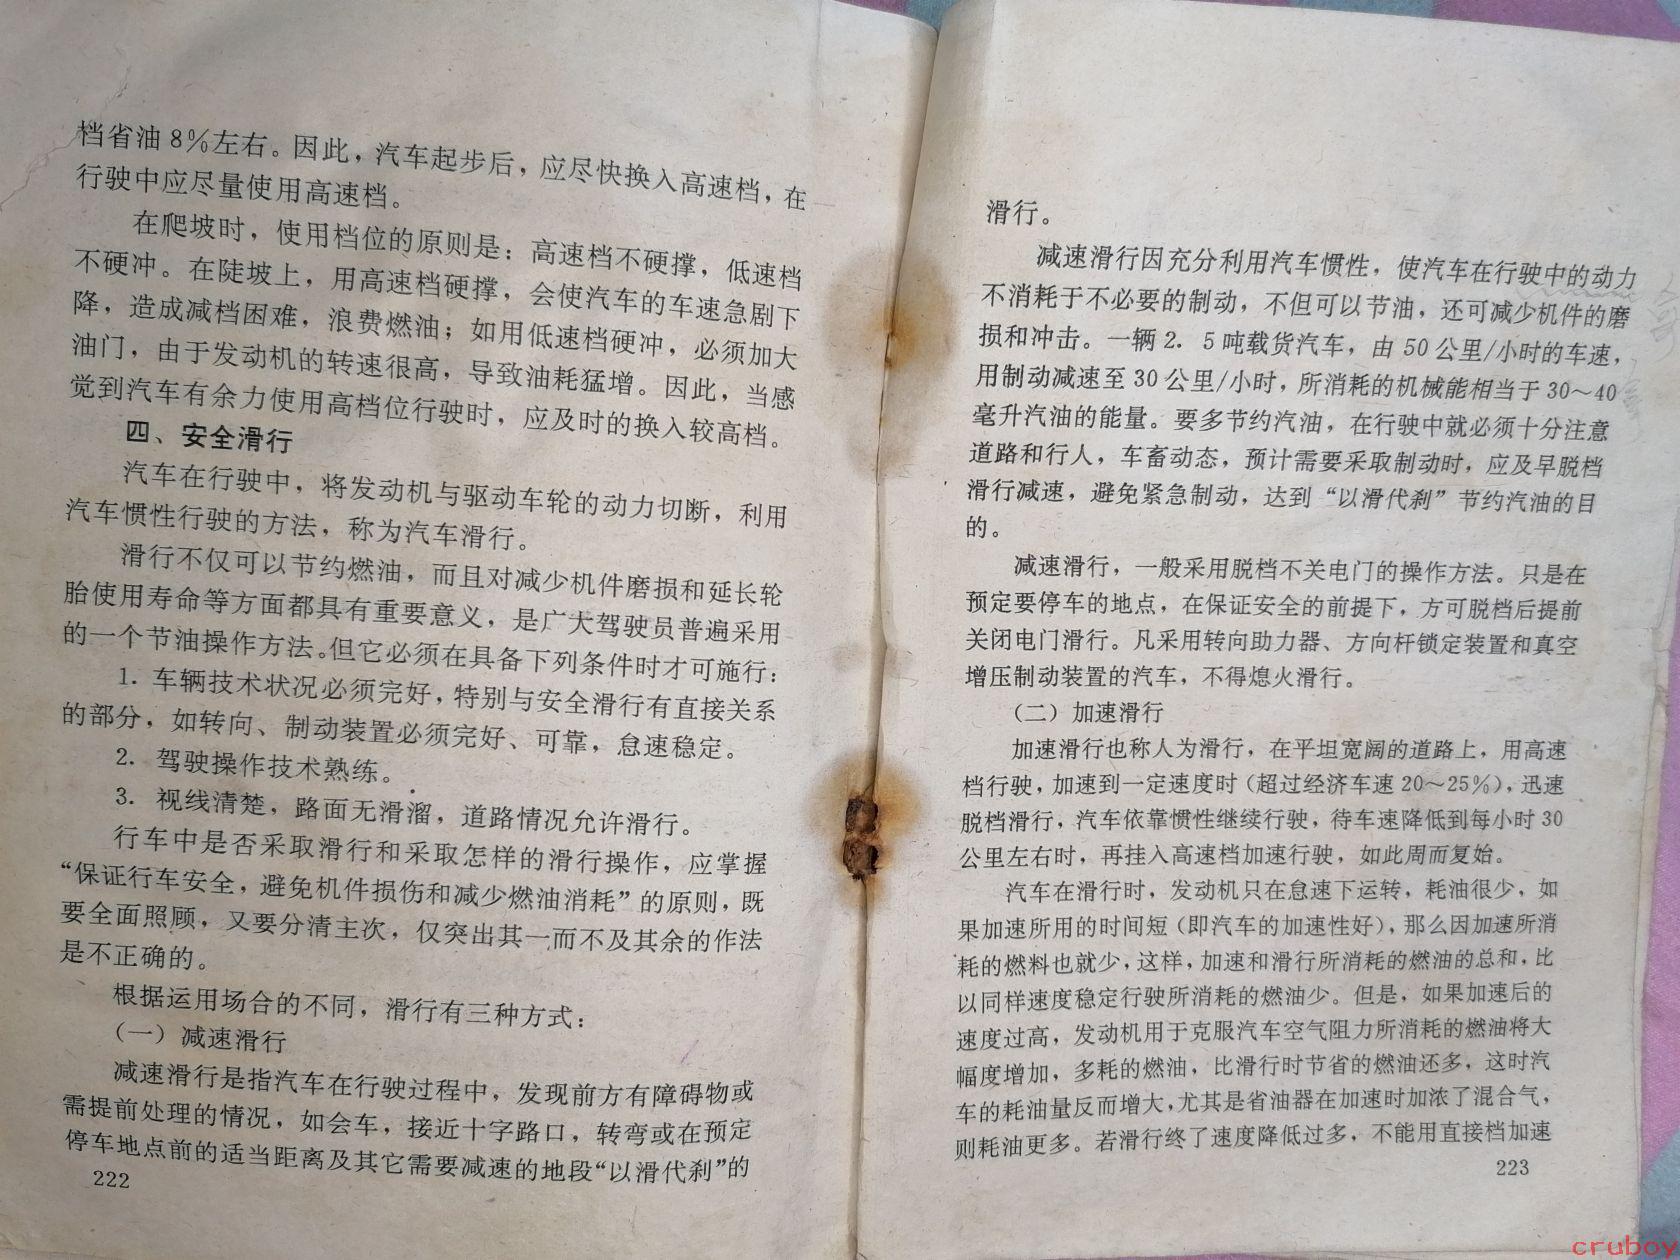 档省油8%左右。因此，汽车起步后，应尽快换入高速档，在
行驶中应尽量使用高速档。
在爬坡时，使用档位的原则是：高速档不硬撑，低速档
不硬冲。在陡坡上，用高速档硬撑，会使汽车的车速急剧下
降，造成减档困难，浪费燃油；如用低速档硬冲，必须加大
油门，由于发动机的转速很高，导致油耗猛增。因此，当感
觉到汽车有余力使用高档位行驶时，应及时的换入较高档。
四、安全滑行
汽车在行驶中，将发动机与驱动车轮的动力切断，利用
汽车惯性行驶的方法，称为汽车滑行。
滑行不仅可以节约燃油，而且对减少机件磨损和延长轮
胎使用寿命等方面都具有重要意义，是广大驾驶员普遍采用
的一个节油操作方法。但它必须在具备下列条件时才可施行：
1. 车辆技术状况必须完好，特别与安全滑行有直接关系
的部分，如转向、制动装置必须完好、可靠，怠速稳定。
2. 驾驶操作技术熟练。
3. 视线清楚，路面无滑溜，道路情况允许滑行。
行车中是否采取滑行和采取怎样的滑行操作，应掌握
“保证行车安全，避免机件损伤和减少燃油消耗”的原则，既
要全面照顾，又要分清主次，仅突出其一而不及其余的作法
是不正确的。
根据运用场合的不同，滑行有三种方式：
（一）减速滑行
减速滑行是指汽车在行驶过程中，发现前方有障碍物或
需提前处理的情况，如会车，接近十字路口，转弯或在预定
停车地点前的适当距离及其它需要减速的地段“以滑代刹”的
222
滑行。
减速滑行因充分利用汽车惯性，使汽车在行驶中的动力
不消耗于不必要的制动，不但可以节油，还可减少机件的磨
损和冲击。一辆2．5吨载货汽车，由50公里/小时的车速，
用制动减速至30公里/小时，所消耗的机械能相当于30～40
毫升汽油的能量。要多节约汽油，在行驶中就必须十分注意
道路和行人，车畜动态，预计需要采取制动时，应及早脱档
滑行减速，避免紧急制动，达到“以滑代刹”节约汽油的目
的。
减速滑行，一般采用脱档不关电门的操作方法。只是在
预定要停车的地点，在保证安全的前提下，方可脱档后提前
关闭电门滑行。凡采用转向助力器、方向杆锁定装置和真空
增压制动装置的汽车，不得熄火滑行。
（二）加速滑行
加速滑行也称人为滑行，在平坦宽阔的道路上，用高速
档行驶，加速到一定速度时（超过经济车速20～25%），迅速
脱档滑行，汽车依靠惯性继续行驶，待车速降低到每小时30
公里左右时，再挂入高速档加速行驶，如此周而复始。
汽车在滑行时，发动机只在怠速下运转，耗油很少，如
果加速所用的时间短（即汽车的加速性好），那么因加速所消
耗的燃料也就少，这样，加速和滑行所消耗的燃油的总和，比
以同样速度稳定行驶所消耗的燃油少。但是，如果加速后的
速度过高，发动机用于克服汽车空气阻力所消耗的燃油将大
幅度增加，多耗的燃油，比滑行时节省的燃油还多，这时汽
车的耗油量反而增大，尤其是省油器在加速时加浓了混合气，
则耗油更多。若滑行终了速度降低过多，不能用直接档加速
223
cruboy